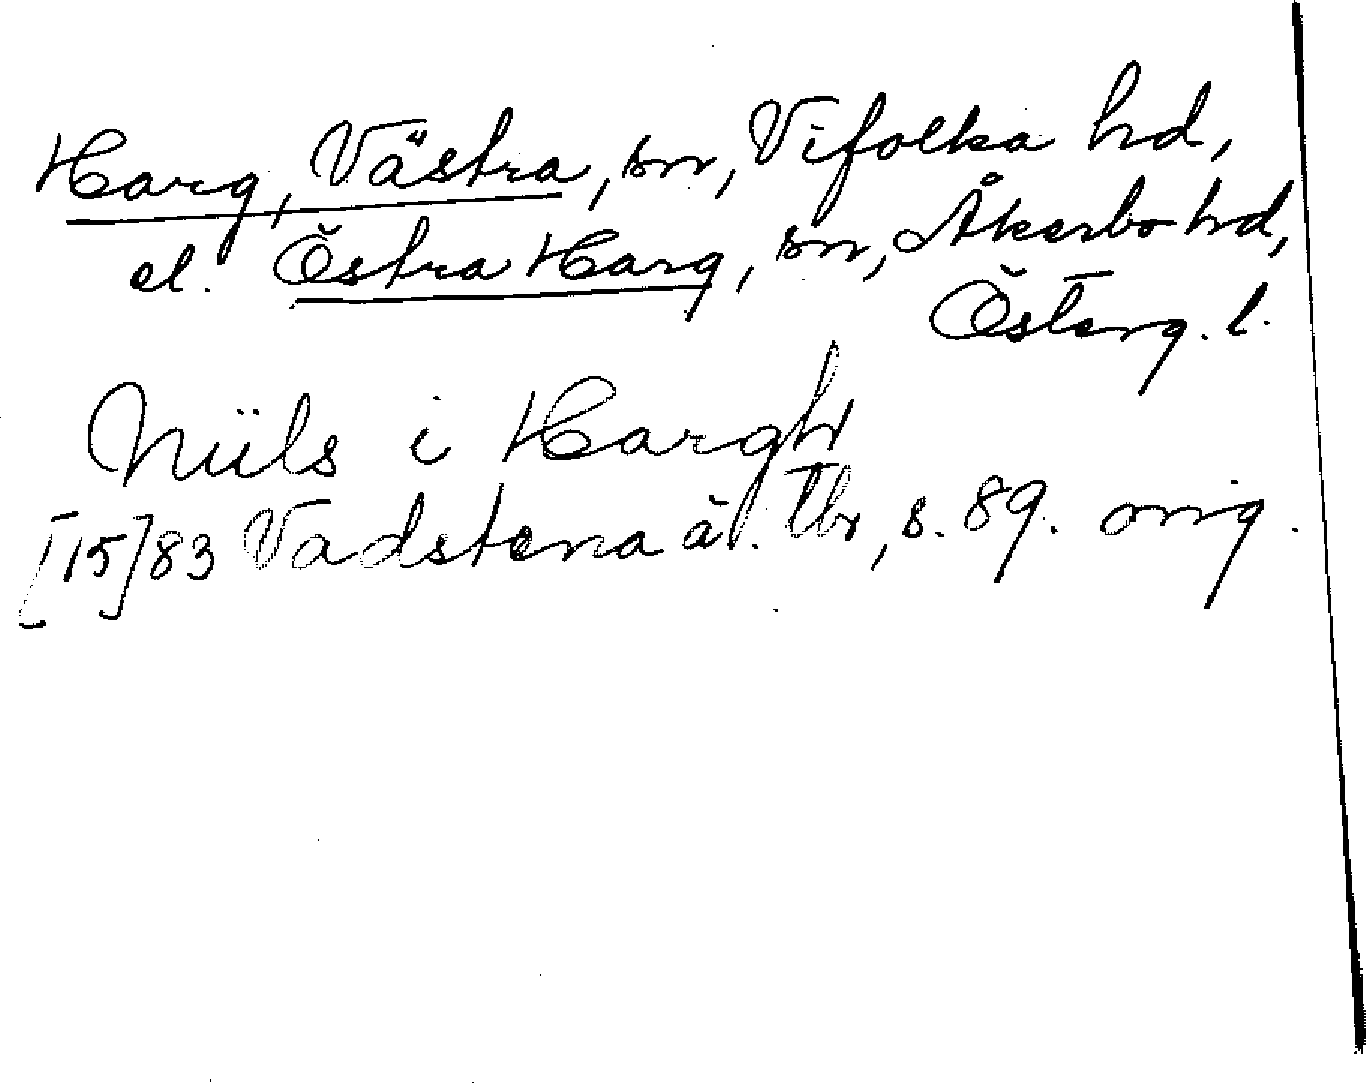 Harg, Västra, sn, Vifolka hd,
el. Östra Harg, sn, Åkerbo hd,
Österg. l.
Niils i Hargh
[15]83 Vadstena ä. Tb, s. 89. orig.